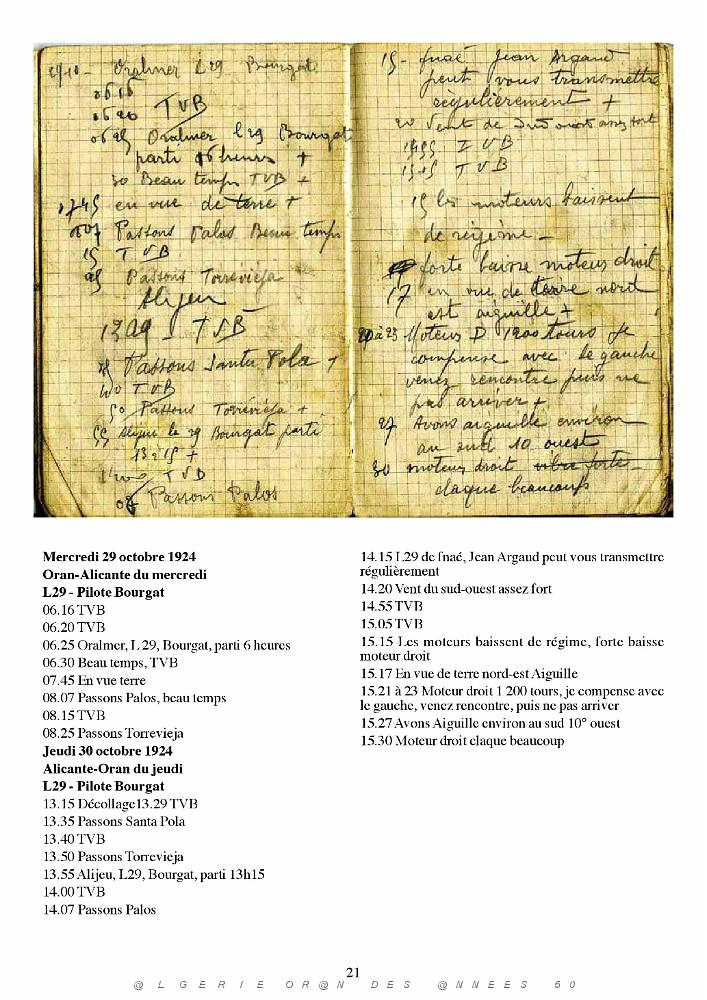 2910- Oralmer L 29 Bourgat
0616
0620 TVB
0625 Oralmer l 29 Bourgat
parti 6 heures +
30 Beau temps TVB +
0745 en vue de terre +
0807 Passons Palos Beau temps
15 TVB
25 Passons Torrevieja
Alijeu
1329 TVB
35 Passons Santa Pola +
40 TVB
50 Passons Torrevieja +
55 Alijeu le 29 Bourgat parti
13 15 +
1400 TVB
07 Passons Palos
15- fnaé Jean Argaud
peut vous transmettre
régulièrement +
20 Vent de Sud ouest assez fort
1455 TVB
1505 TVB
15 les moteurs baissent
de régime -
17 forte baisse moteur droit
17 en vue de terre nord
est aiguille +
21 a 23 Moteur D 1200 tours je
compense avec le gauche
venez rencontre puis ne
pas arriver +
27 Avons aiguille environ
au sud 10 ouest
30 moteur droit vibre forte
claque beaucoup
Mercredi 29 octobre 1924
Oran-Alicante du mercredi
L29 - Pilote Bourgat
06.16 TVB
06.20 TVB
06.25 Oralmer, L 29, Bourgat, parti 6 heures
06.30 Beau temps, TVB
07.45 En vue terre
08.07 Passons Palos, beau temps
08.15 TVB
08.25 Passons Torrevieja
Jeudi 30 octobre 1924
Alicante-Oran du jeudi
L29 - Pilote Bourgat
13.15 Décollage13.29 TVB
13.35 Passons Santa Pola
13.40 TVB
13.50 Passons Torrevieja
13.55 Alijeu, L29, Bourgat, parti 13h15
14.00 TVB
14.07 Passons Palos
14.15 L29 de fnaé, Jean Argaud peut vous transmettre
régulièrement
14.20 Vent du sud-ouest assez fort
14.55 TVB
15.05 TVB
15.15 Les moteurs baissent de régime, forte baisse
moteur droit
15.17 En vue de terre nord-est Aiguille
15.21 à 23 Moteur droit 1 200 tours, je compense avec
le gauche, venez rencontre, puis ne pas arriver
15.27 Avons Aiguille environ au sud 10° ouest
15.30 Moteur droit claque beaucoup
21
@ L G E R I E O R @ N D E S @ N N E E S 5 0